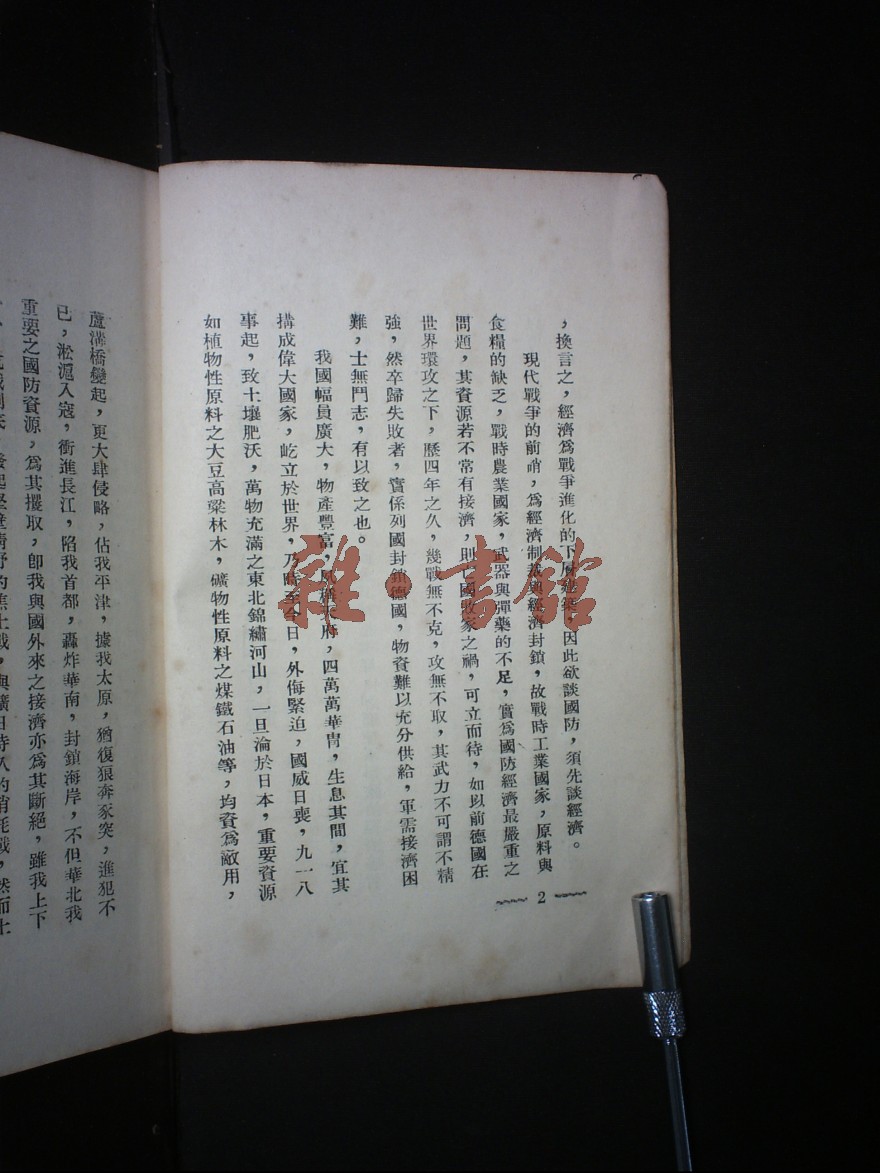 ，換言之，經濟爲戰爭進化的下層建築，因此欲談國防，須先談經濟。
現代戰爭的前哨，爲經濟制裁與經濟封鎖，故戰時工業國家，原料與
食糧的缺乏，戰時農業國家，武器與彈藥的不足，實爲國防經濟最嚴重之
問題，其資源若不常有接濟，則亡國敗家之禍，可立而待，如以前德國在
世界環攻之下，歷四年之久，幾戰無不克，攻無不取，其武力不可謂不精
強，然卒歸失敗者，實係列國封鎖德國，物資難以充分供給，軍需接濟困
難，士無鬥志，有以致之也。
我國幅員廣大，物產豐富，夙稱天府，四萬萬華冑，生息其間，宜其
搆成偉大國家，屹立於世界，乃時至今日，外侮緊迫，國威日喪，九一八
事起，致土壤肥沃，萬物充滿之東北錦繡河山，一旦淪於日本，重要資源
如植物性原料之大豆高粱林木，礦物性原料之煤鐵石油等，均資爲敵用，
2
蘆溝橋變起，更大肆侵略，佔我平津，據我太原，猶復狼奔豕突，進犯不
已，淞滬入寇，衝進長江，陷我首都，轟炸華南，封鎖海岸，不但華北我
重要之國防資源，爲其攫取，卽我與國外來之接濟亦爲其斷絕，雖我上下
雜·書館